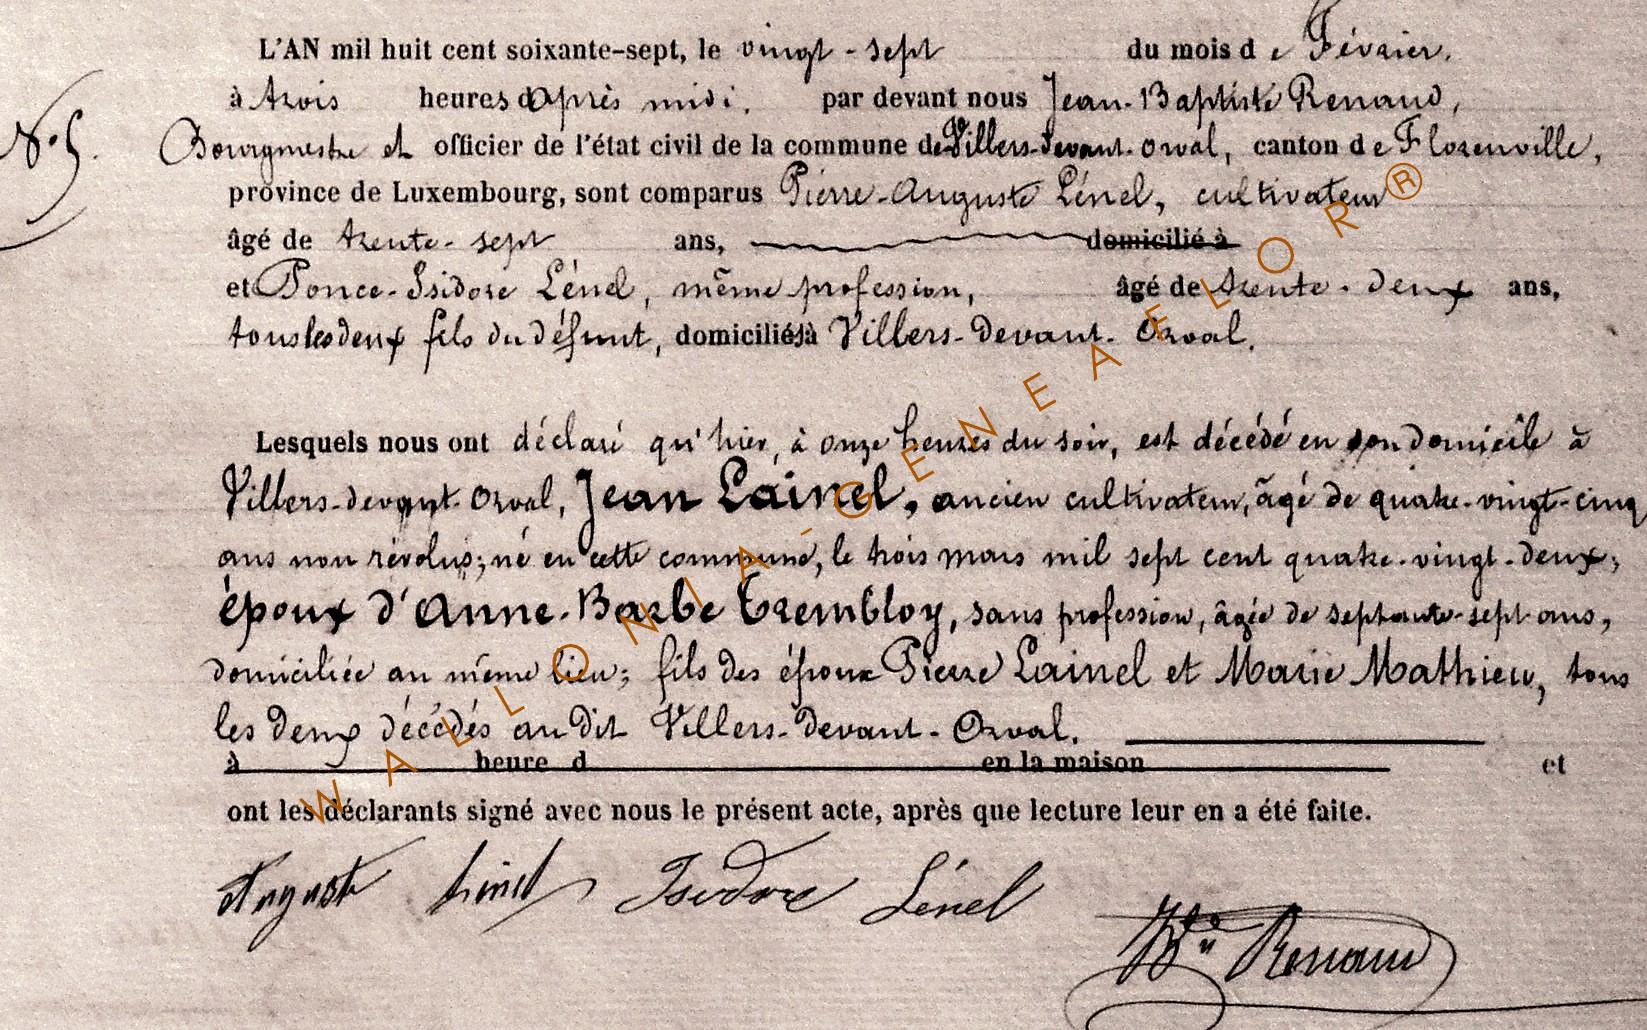 L'AN mil huit cent soixante-sept, le vingt-sept du mois de Février,
à trois heures d'après midi, par devant nous Jean-Baptiste Renaud,
N° 5. Bourgmestre et officier de l'état civil de la commune de Villers-devant-Orval, canton de Florenville,
province de Luxembourg, sont comparus Pierre-Auguste Lénel, cultivateur
âgé de trente-sept ans, domicilié à
et Ponce-Isidore Lénel, même profession, âgé de trente-deux ans,
tous les deux fils du défunt, domiciliés à Villers-devant-Orval.
Lesquels nous ont déclaré qu'hier, à onze heures du soir, est décédé en son domicile à
Villers-devant-Orval, Jean Lainel, ancien cultivateur, âgé de quatre-vingt-cinq
ans non révolus; né en cette commune, le trois mars mil sept cent quatre-vingt-deux;
époux d'Anne-Barbe Trembloy, sans profession, âgée de septante-sept ans,
domiciliée au même lieu; fils des époux Pierre Lainel et Marie Mathieu, tous
les deux décédés au dit Villers-devant-Orval.
à heure d en la maison et
ont les déclarants signé avec nous le présent acte, après que lecture leur en a été faite.
Auguste Linel Isidore Lénel
Renaud
WALLONIA-GENEAFLOR®